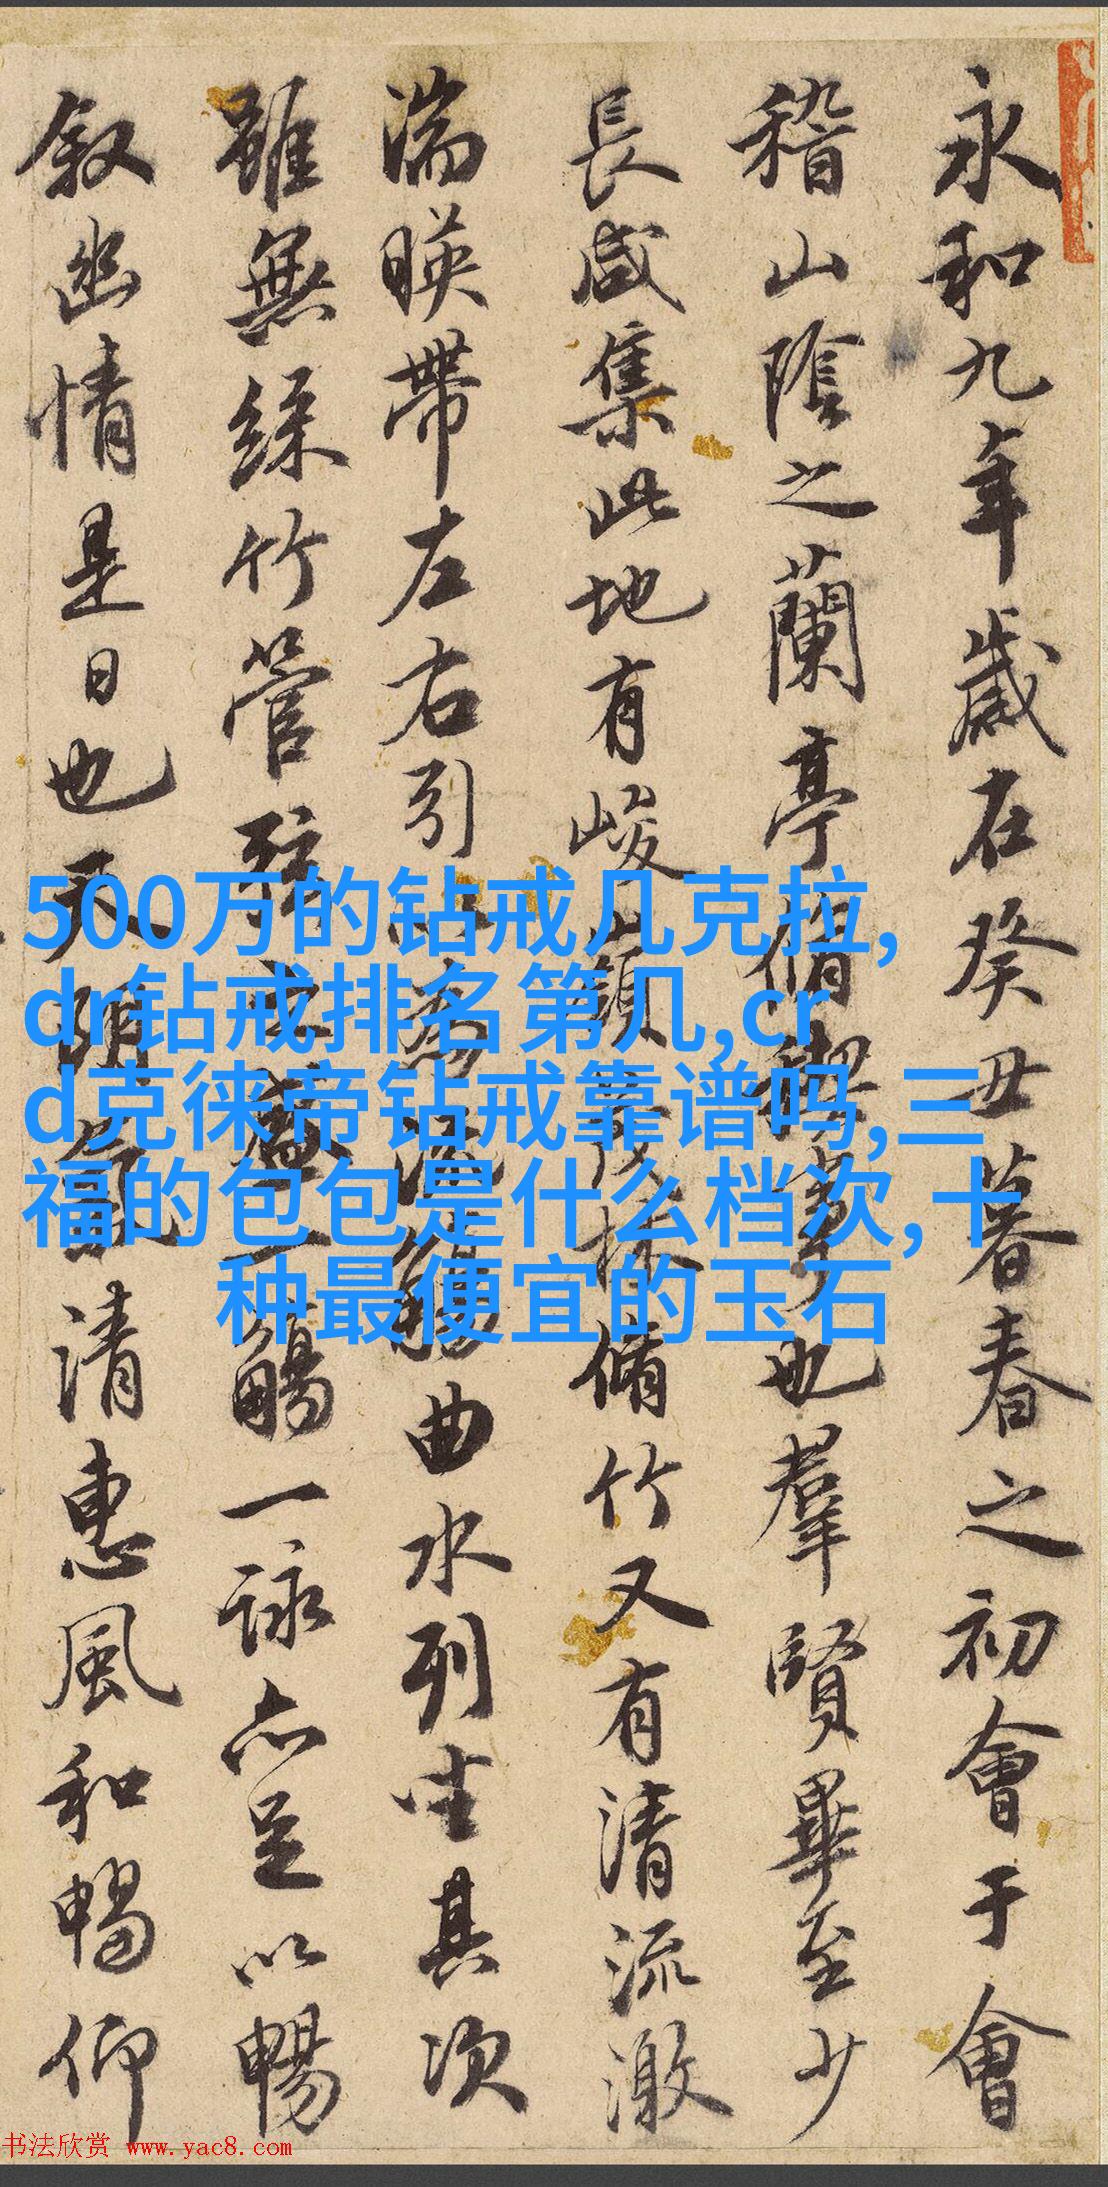 永和九年歲在癸丑暮春之初會于會
稽山陰之蘭亭脩禊事也羣賢畢至少
長咸集此地有峻領茂林脩竹又有清流激
湍暎帶左右引以為流觴曲水列坐其次
雖無絲竹管弦之盛一觴一詠亦足以暢
叙幽情是日也天朗氣清惠風和暢仰
500万的钻戒几克拉,
dr钻戒排名第几,cr
d克徕帝钻戒靠谱吗,三
福的包包是什么档次,十
种最便宜的玉石
书法欣赏 www.yac8.com